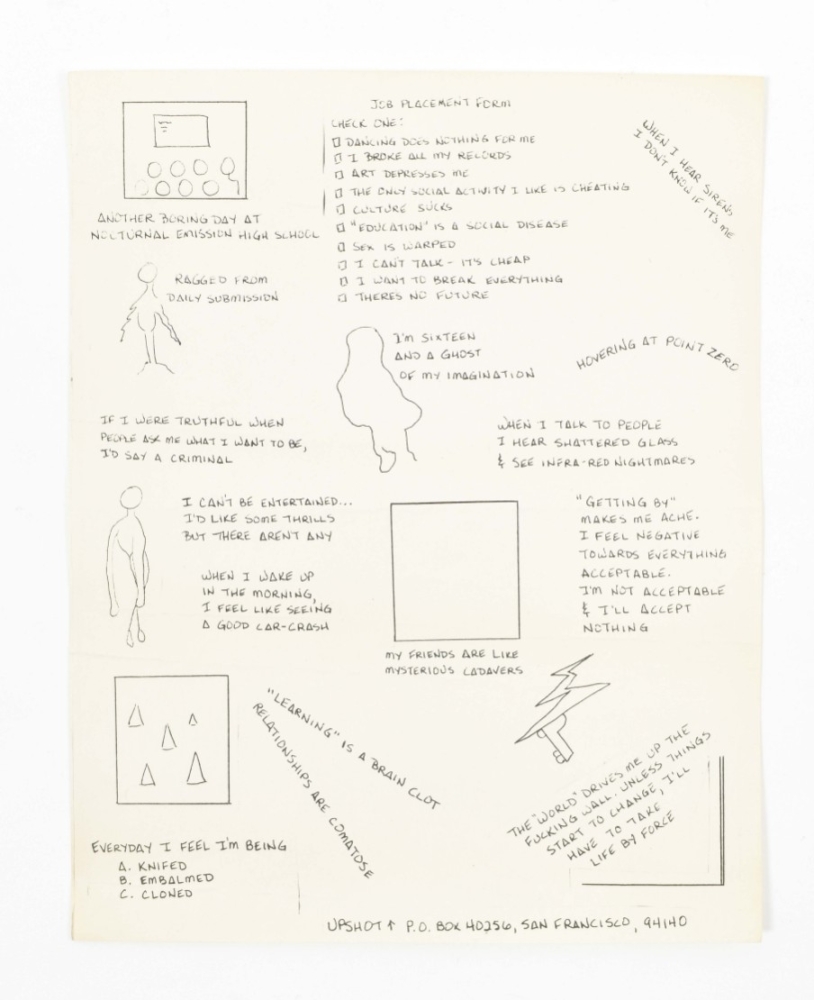 JOB PLACEMENT FORM
CHECK ONE:
DANCING DOES NOTHING FOR ME
I BROKE ALL MY RECORDS
ART DEPRESSES ME
THE ONLY SOCIAL ACTIVITY I LIKE IS CHEATING
CULTURE SUCKS
"EDUCATION" IS A SOCIAL DISEASE
SEX IS WARPED
I CAN'T TALK - IT'S CHEAP
I WANT TO BREAK EVERYTHING
THERES NO FUTURE
WHEN I HEAR SIRENS
I DON'T KNOW IF IT'S ME
ANOTHER BORING DAY AT
NOCTURNAL EMISSION HIGH SCHOOL
RAGGED FROM
DAILY SUBMISSION
I'M SIXTEEN
AND A GHOST
OF MY IMAGINATION
HOVERING AT POINT ZERO
IF I WERE TRUTHFUL WHEN
PEOPLE ASK ME WHAT I WANT TO BE,
I'D SAY A CRIMINAL
WHEN I TALK TO PEOPLE
I HEAR SHATTERED GLASS
& SEE INFRA-RED NIGHTMARES
I CAN'T BE ENTERTAINED...
I'D LIKE SOME THRILLS
BUT THERE AREN'T ANY
WHEN I WAKE UP
IN THE MORNING,
I FEEL LIKE SEEING
A GOOD CAR-CRASH
MY FRIENDS ARE LIKE
MYSTERIOUS CADAVERS
"GETTING BY"
MAKES ME ACHE.
I FEEL NEGATIVE
TOWARDS EVERYTHING
ACCEPTABLE.
I'M NOT ACCEPTABLE
& I'LL ACCEPT
NOTHING
"LEARNING" IS A BRAIN CLOT
RELATIONSHIPS ARE COMATOSE
THE "WORLD" DRIVES ME UP THE
FUCKING WALL. UNLESS THINGS
START TO CHANGE, I'LL
HAVE TO TAKE
LIFE BY FORCE
EVERYDAY I FEEL I'M BEING
A. KNIFED
B. EMBALMED
C. CLONED
UPSHOT ↑ P.O. BOX 40256, SAN FRANCISCO, 94140